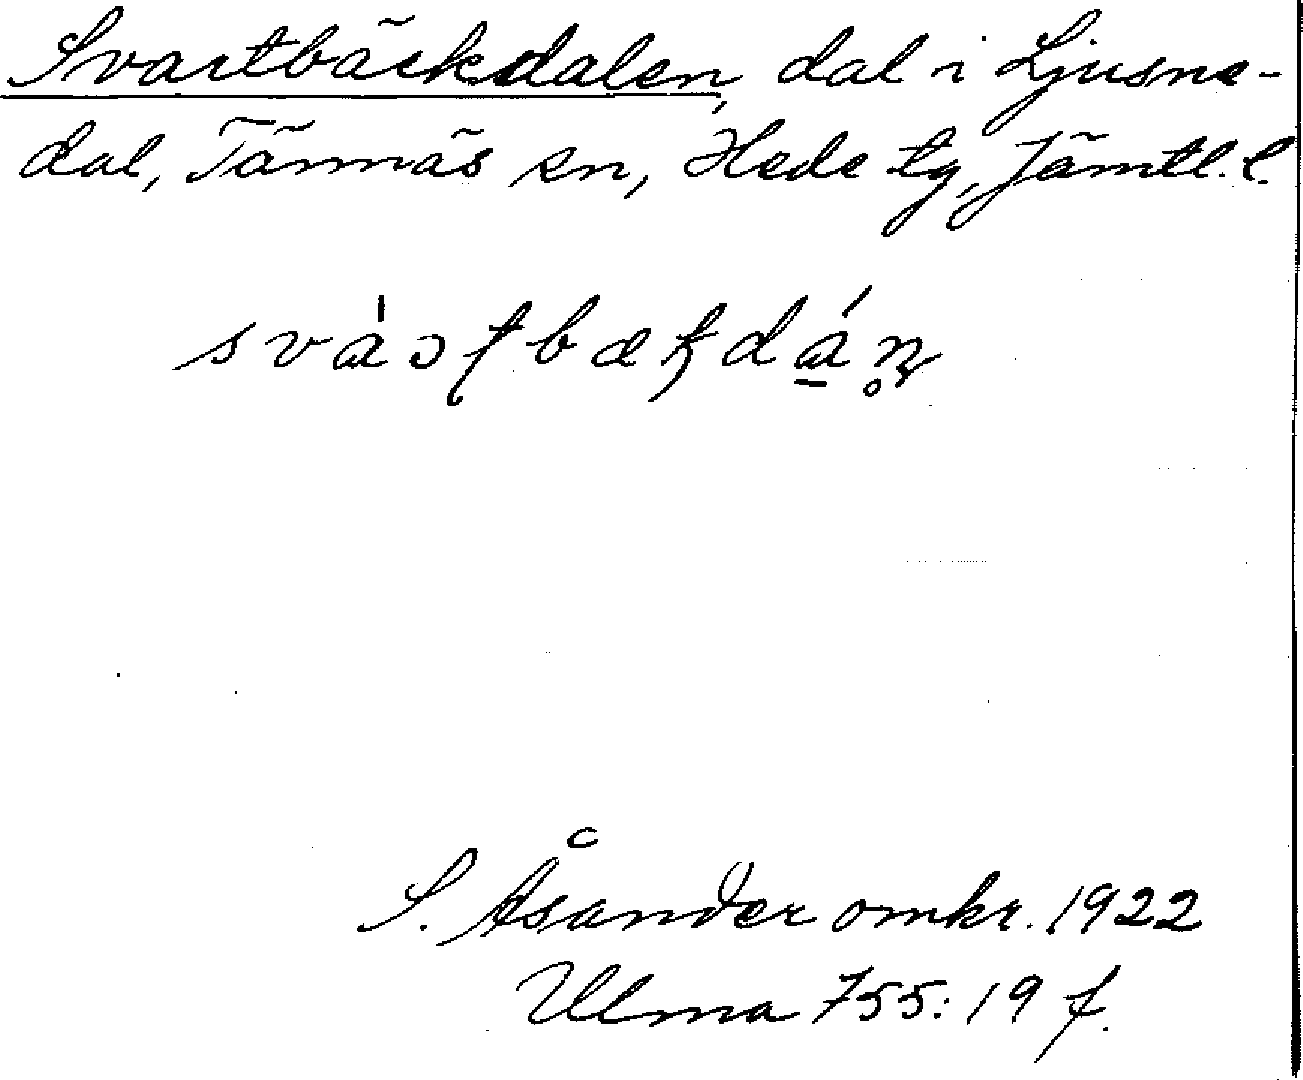 Svartbäckdalen, dal i Ljusne-
dal, Tännäs sn, Hede tg, Jämtl. l.
S. Åsander omkr. 1922
Ulma 755: 19 f.